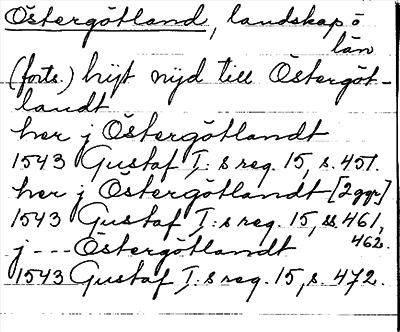 Östergötland, landskap o
län
(forts.) hijt nijd till Östergöt-
landt
her j Östergötlandt
1543 Gustaf I:s reg. 15, s. 451.
her j Östergötlandt [2 ggr]
1543 Gustaf I:s reg. 15, ss. 461,
462.
j --- Östergötlandt
1543 Gustaf I:s reg. 15, s. 472.